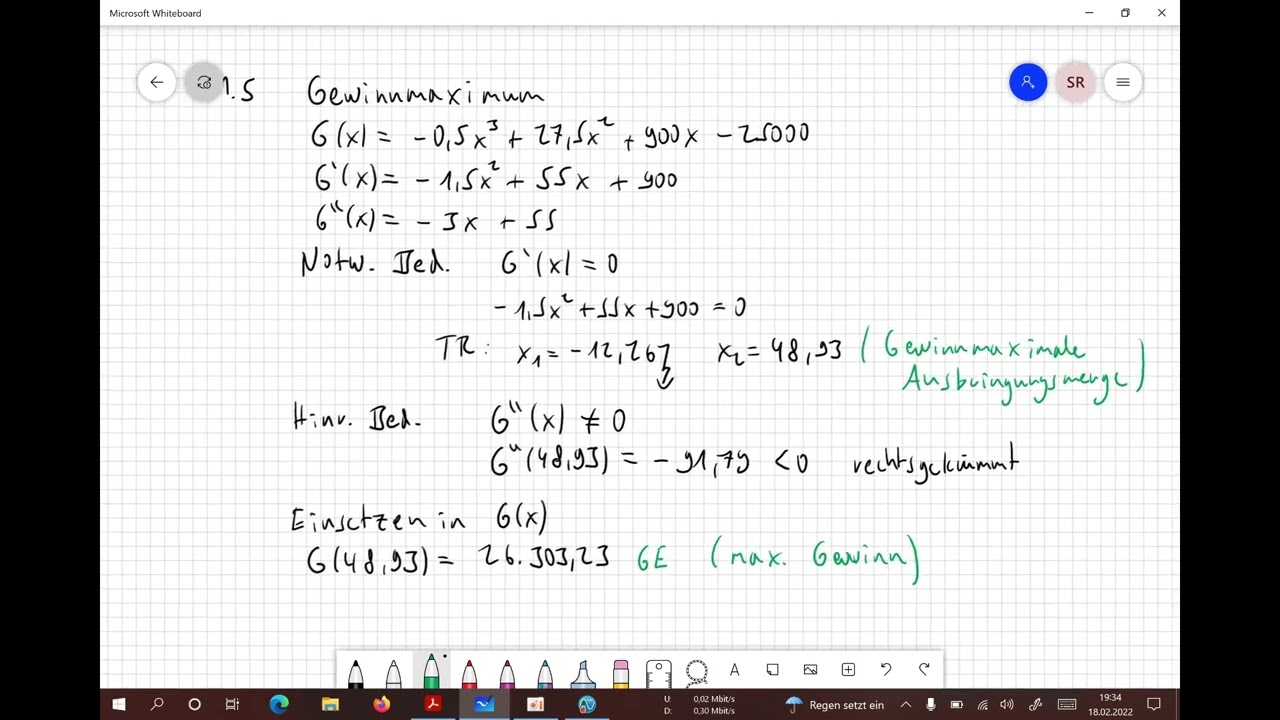 Microsoft Whiteboard
1.5 Gewinnmaximum
SR
G(x) = -0,5x³ + 27,5x² + 900x - 25000
G'(x) = -1,5x² + 55x + 900
G"(x) = -3x + 55
Notw. Bed. G'(x) = 0
-1,5x² + 55x + 900 = 0
TR: x₁ = -12,267 x₂ = 48,93 (Gewinnmaximale
Ausbringungsmenge)
Hinr. Bed. G"(x) ≠ 0
G"(48,93) = -91,79 < 0 rechtsgekrümmt
Einsetzen in G(x)
G(48,93) = 26.303,23 GE (max. Gewinn)
A
U: 0,02 Mbit/s
D: 0,30 Mbit/s
Regen setzt ein
19:34
18.02.2022